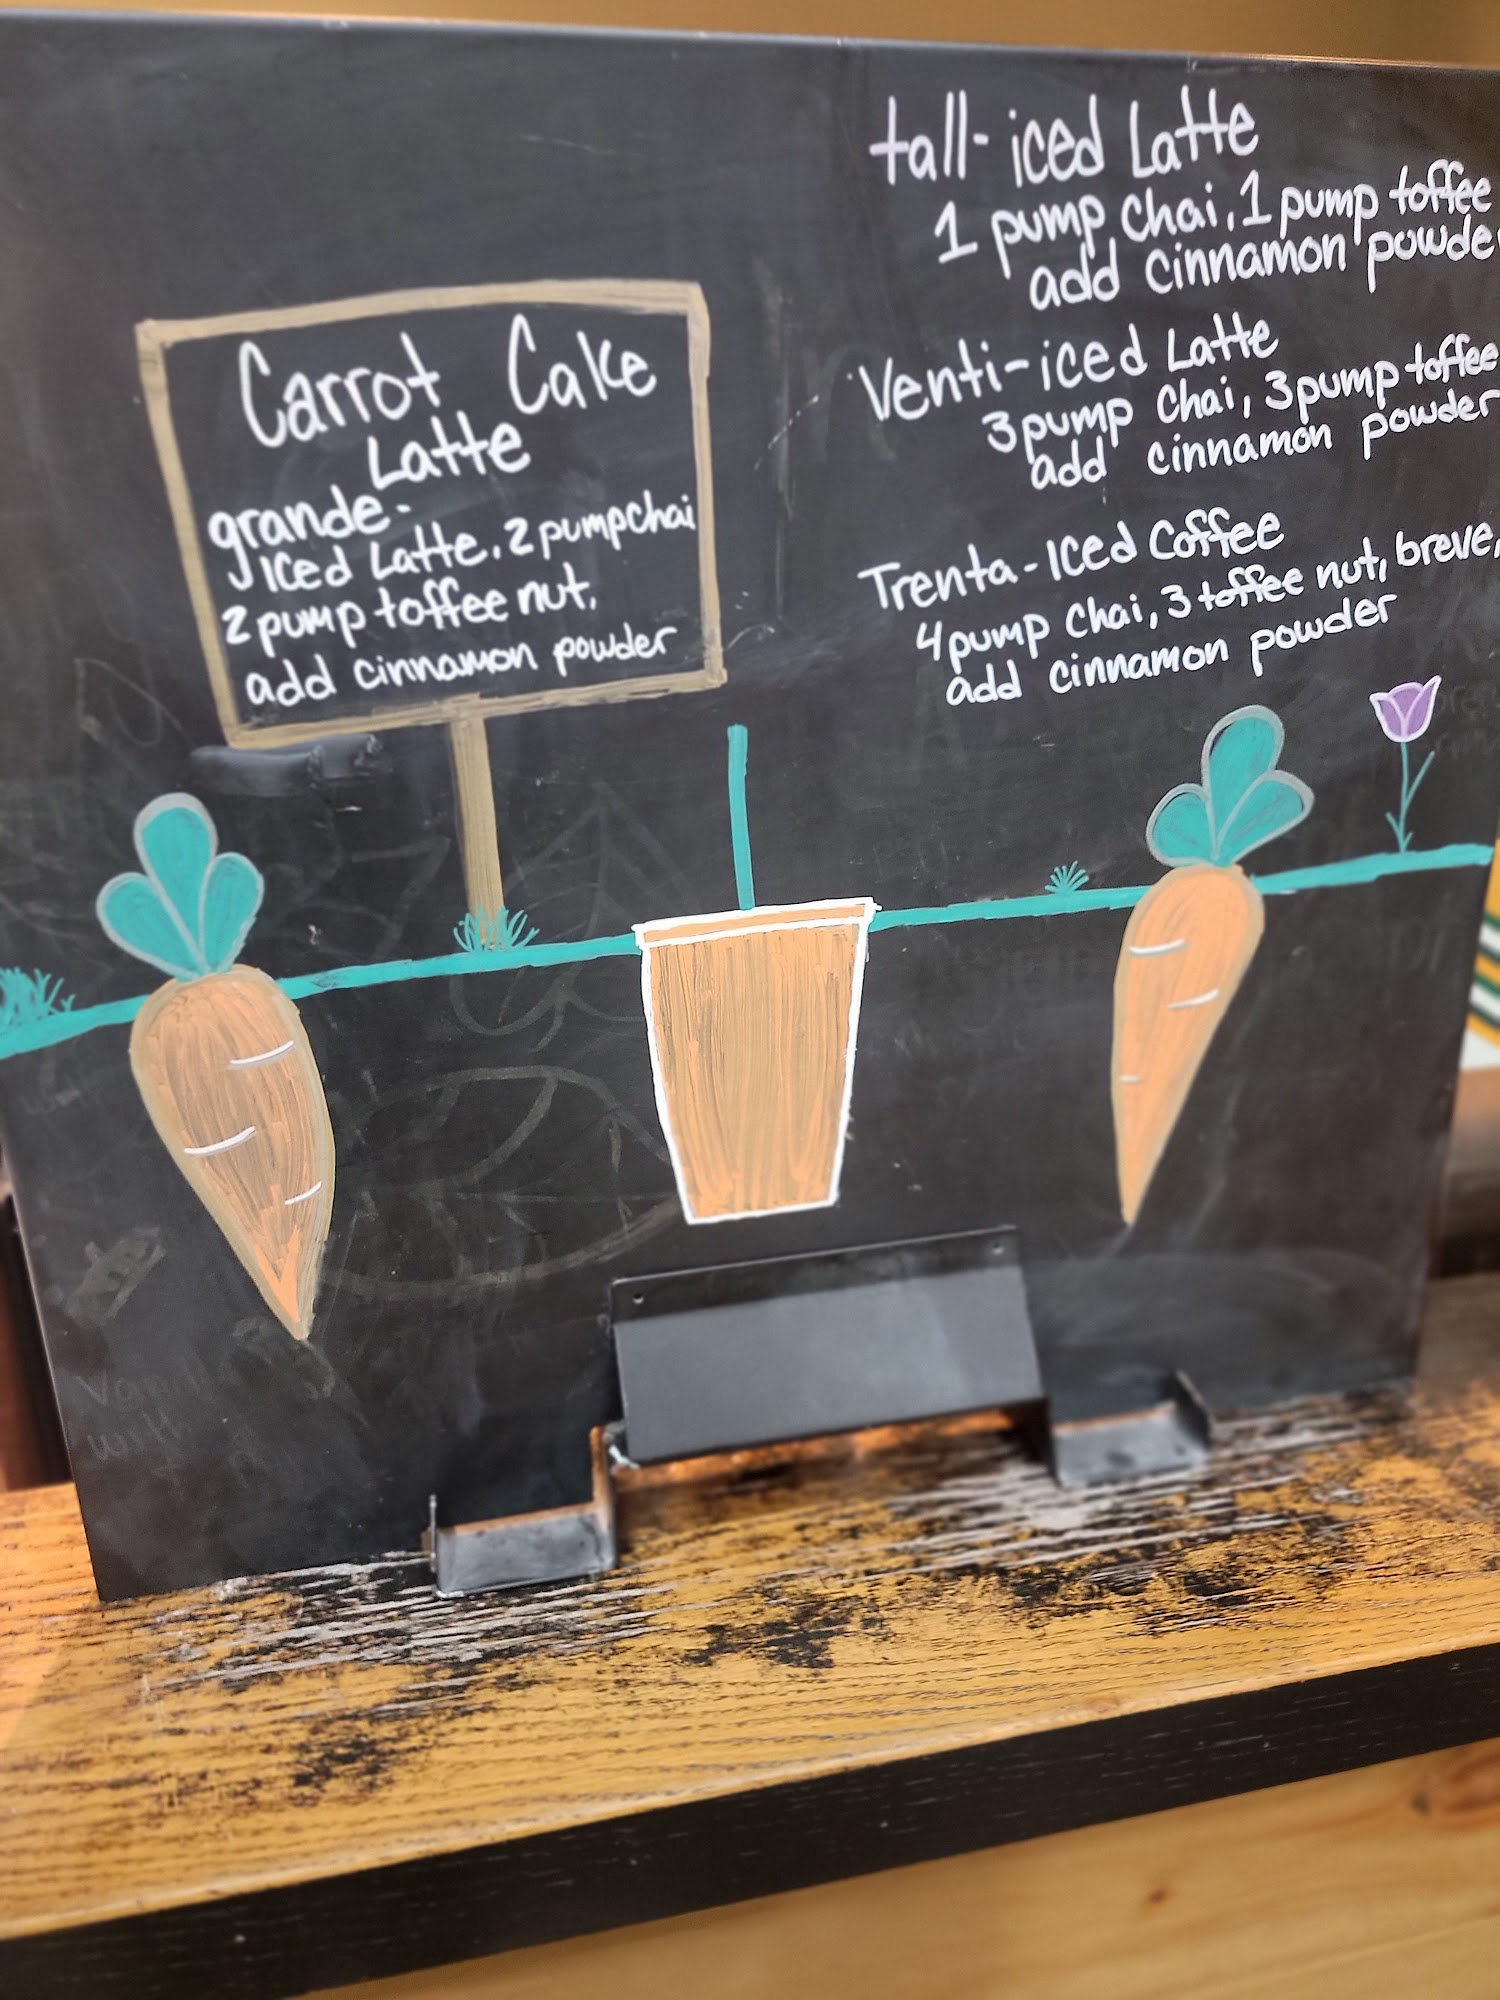 Carrot Cake
Latte
grande-
Iced Latte, 2 pump chai
2 pump toffee nut,
add cinnamon powder
tall- iced Latte
1 pump chai, 1 pump toffee
add cinnamon powde
Venti-iced Latte
3 pump chai, 3 pump toffee
add cinnamon powder
Trenta-Iced Coffee
4 pump chai, 3 toffee nut, breve,
add cinnamon powder